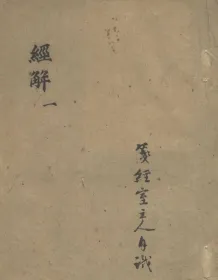 經解 一
箋經室主人自識